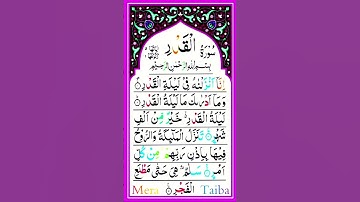 سُوْرَةُ الْقَدْرِ
بِسْمِ اللهِ الرَّحْمٰنِ الرَّحِيْمِ
اِنَّاۤ اَنْزَلْنٰهُ فِیْ لَیْلَةِ الْقَدْرِ
وَمَاۤ اَدْرٰىكَ مَا لَیْلَةُ الْقَدْرِ
لَیْلَةُ الْقَدْرِ خَیْرٌ مِّنْ اَلْفِ
شَهْرٍ تَنَزَّلُ الْمَلٰٓئِكَةُ وَالرُّوْحُ
فِیْهَا بِاِذْنِ رَبِّهِمْ مِّنْ كُلِّ
اَمْرٍ سَلٰمٌ هِیَ حَتّٰى مَطْلَعِ
الْفَجْرِ
Mera Taiba